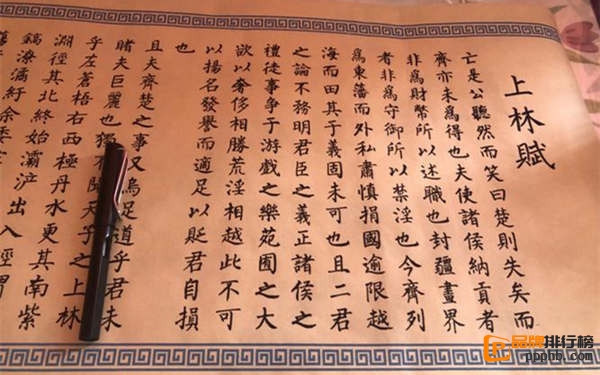 上林賦
亡是公聽然而笑曰楚則失矣而
齊亦未爲得也夫使諸侯納貢者
非爲財幣所以述職也封疆畫界
者非爲守御所以禁淫也今齊列
爲東藩而外私肅慎捐國逾限越
海而田其于義固未可也且二君
之論不務明君臣之義正諸侯之
禮徒事争于游戲之樂苑囿之大
欲以奢侈相勝荒淫相越此不可
以揚名發譽而適足以貶君自損
也
且夫齊楚之事又烏足道乎君未
睹夫巨麗也獨聞天子之上林
乎左蒼梧右西極丹水更其南紫
淵徑其北終始灞滻出入涇渭
鎬潦潏紆余委
品牌排行榜
pphb.com